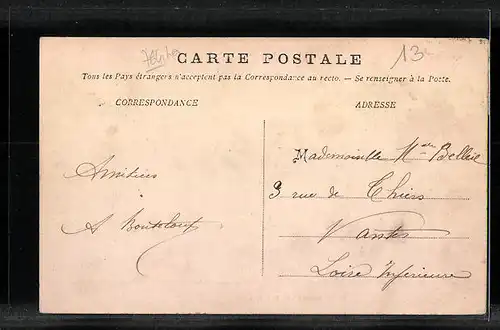 13
CARTE POSTALE
Tous les Pays étrangers n'acceptent pas la Correspondance au recto. — Se renseigner à la Poste.
CORRESPONDANCE
ADRESSE
Mademoiselle
Amitiés
3 rue de
A
Nantes
Loire Inférieure